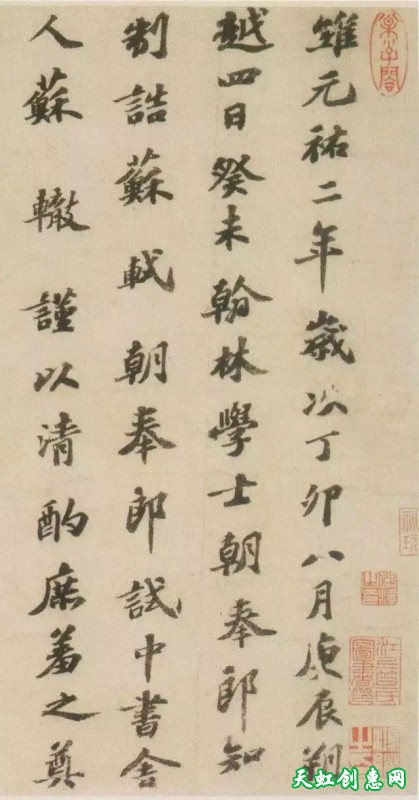 維元祐二年歲次丁卯八月庚辰朔
越四日癸未翰林學士朝奉郎知
制誥蘇軾朝奉郎試中書舍
人蘇轍謹以清酌庶羞之奠
天虹创意网
www.rainbowdiy.com